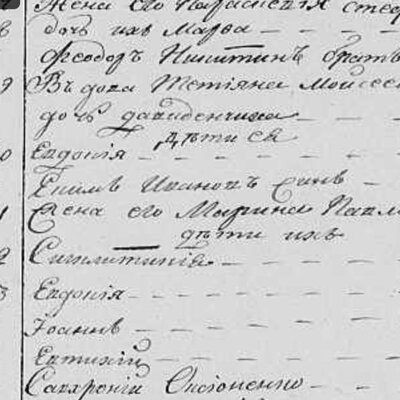 Жена его Параскевія Стеф
8 дочь ихъ Марѳа
Феодоръ Никитинъ братъ
9 Вдова Тетіяна Моисее
дочь давиденкина
дѣти ея
0 Евдокія
Ефимъ Ивановъ Сынъ
1 Жена его Марина Павл
дѣти ихъ
2 Синклитикія
3 Евдокія
Іоаннъ
Евтихій
Савхроній